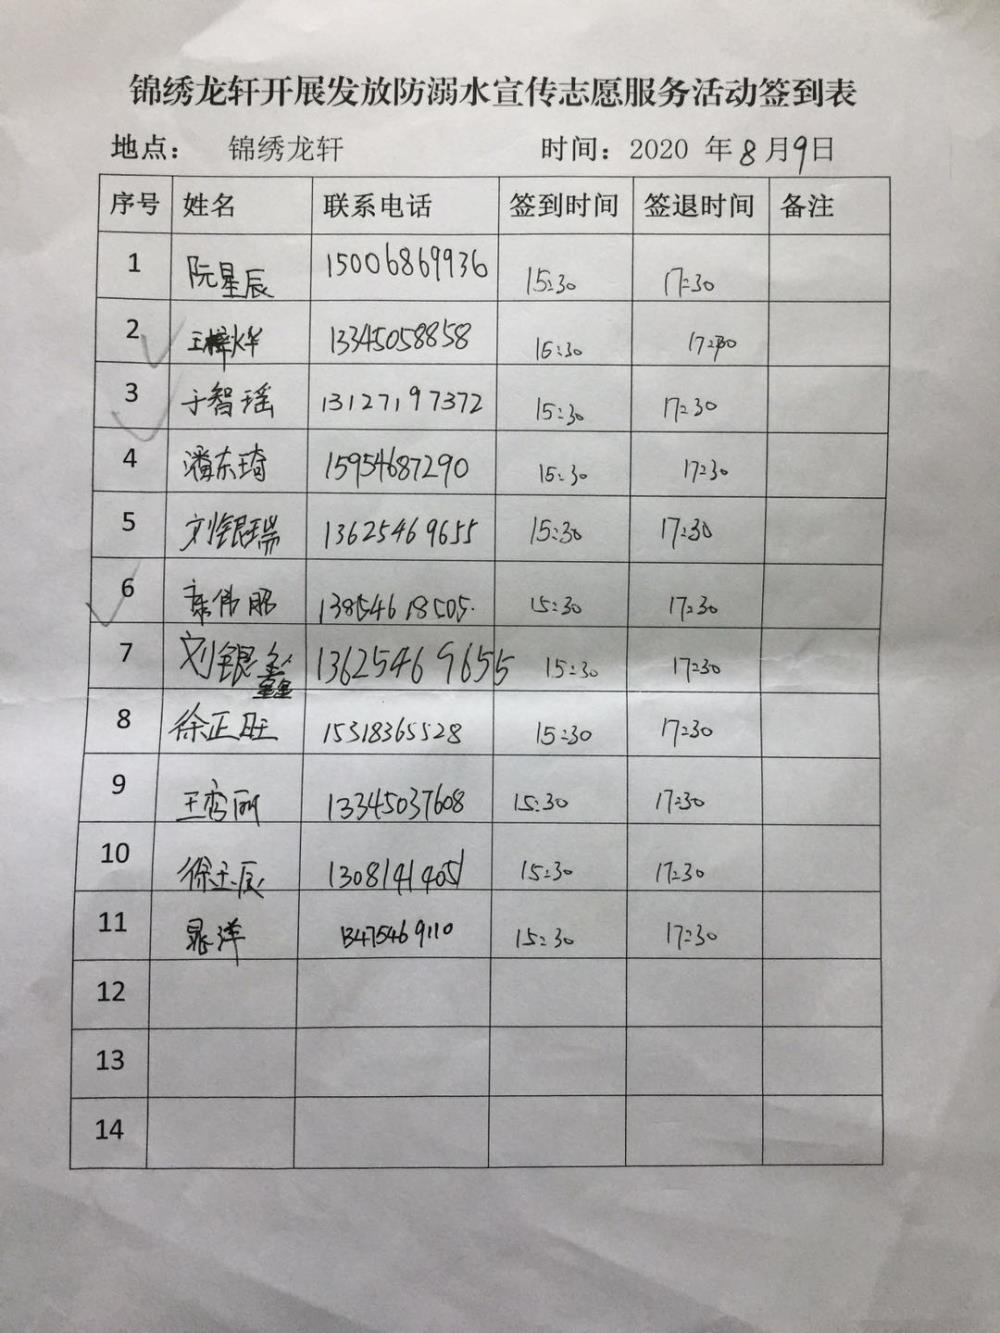 锦绣龙轩开展发放防溺水宣传志愿服务活动签到表
地点： 锦绣龙轩 时间：2020 年8月9日
序号 姓名 联系电话 签到时间 签退时间 备注
1 阮星辰 15006869936 15:30 17:30
2 王梓烨 13345058858 16:30 17:30
3 于智瑶 13127197372 15:30 17:30
4 潘东琦 15954687290 15:30 17:30
5 刘银瑞 13625469655 15:30 17:30
6 13854618505 15:30 17:30
7 刘银鑫 13625469655 15:30 17:30
8 徐正旺 15318365528 15:30 17:30
9 13345037608 15:30 17:30
10 13081414051 15:30 17:30
11 晁洋 13475469110 15:30 17:30
12
13
14